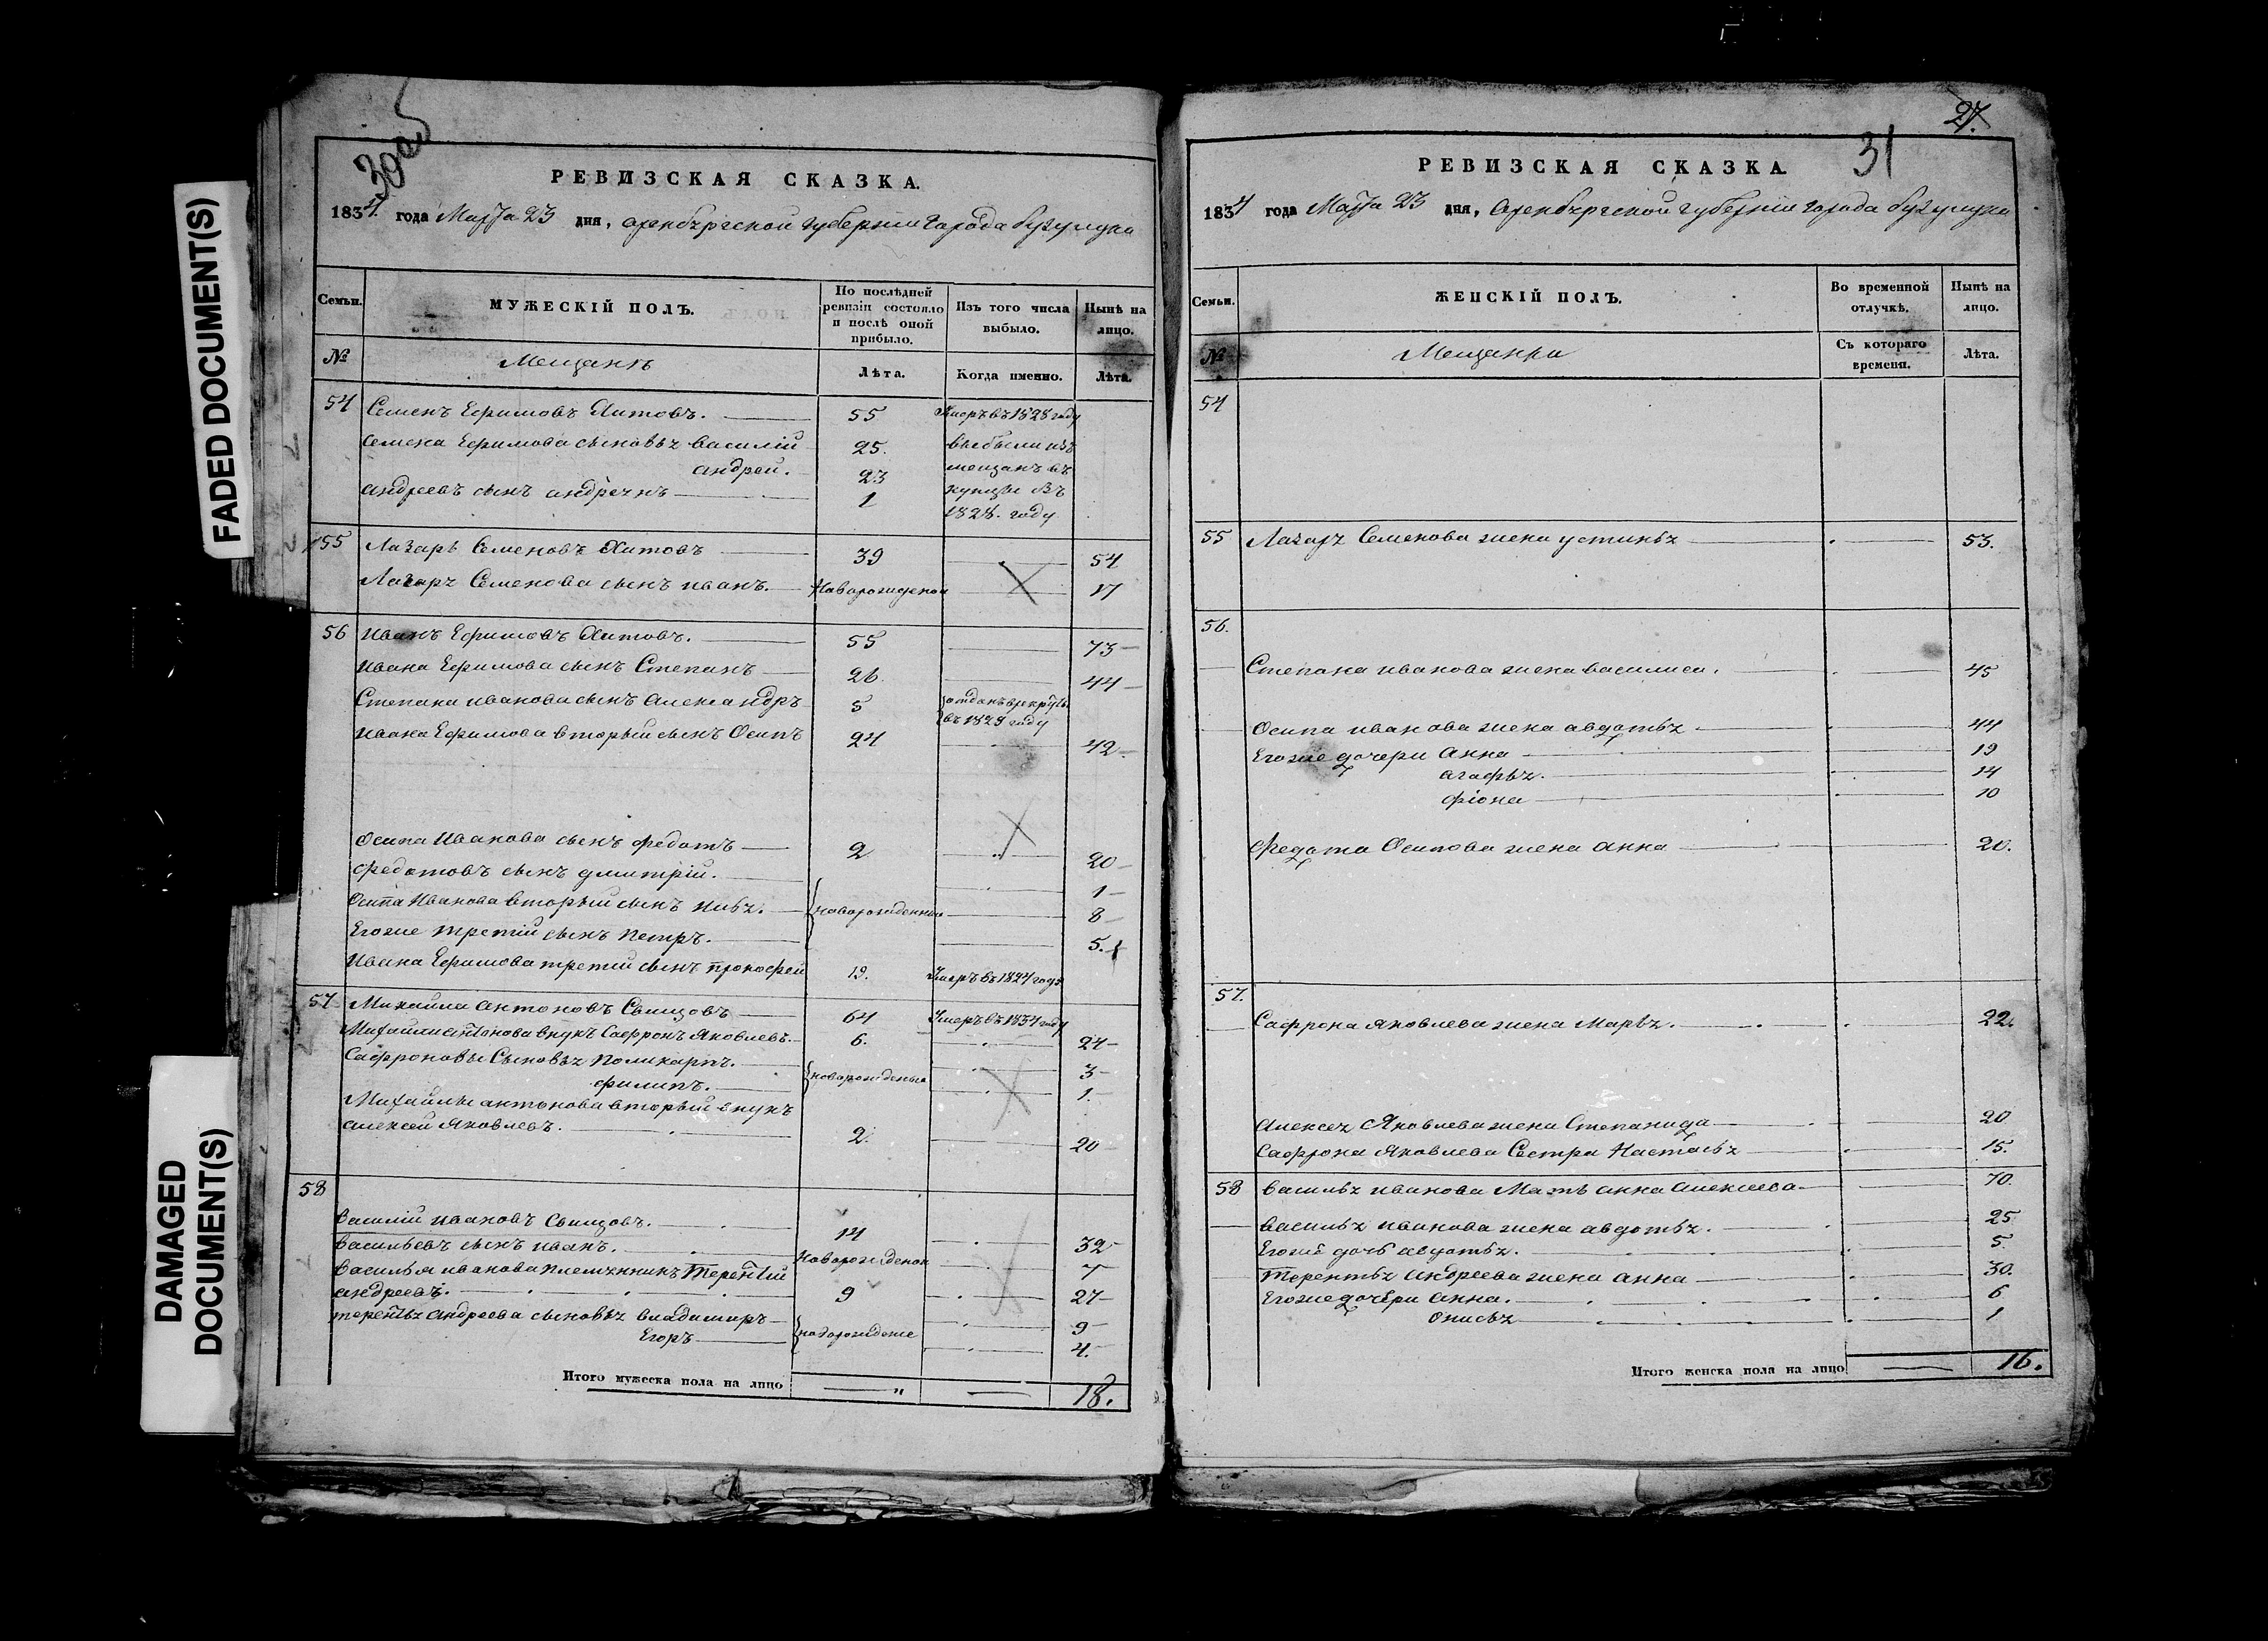 FADED DOCUMENT(S)
DAMAGED
DOCUMENT(S)
30 об
РЕВИЗСКАЯ СКАЗКА.
1834. года Марта 23 дня, Оренбургской губернии города Бузулука
Семьи.
МУЖЕСКІЙ ПОЛЪ.
По послѣдней ревизіи состояло и послѣ оной прибыло.
Изъ того числа выбыло.
Нынѣ на лицо.
№
Мещанъ
Лѣта.
Когда именно.
Лѣта.
54 Семенъ Ефимовъ Хитовъ. 55 Умеръ въ 1828 году
Семена Ефимова сыновьz Василій 25. выбыли изъ
андрей. 23 мещанъ въ
андреевъ сынъ андреянъ 1 купцы въ
1828. году
55 Лазарь Семеновъ Хитовъ 39 54
Лазарz Семенова сынъ иванъ. Новорожденой 17
56 Иванъ Ефимовъ Хитовъ. 55 73
Ивана Ефимова сынъ Степанъ 26. 44
Степана иванова сынъ Александръ 5 отданъ в рекруты
въ 1829 году
Ивана Ефимова вторый сынъ Осипъ 24 42
Осипа Иванова сынъ федотъ 2 20
федотовъ сынъ дмитрій. 1
Осипа Иванова вторый сынъ 8
новорожденныи
Егоже третій сынъ Петръ. 5.
Ивана Ефимова третий сынъ прокофей 19. Умеръ въ 1824 году
57 Михайла антоновъ Свищовъ 64 Умеръ въ 1834 году
Михайлы антонова внукъ Сафронъ Яковлевъ. 6. 24
Сафроновы Сыновьz Поликарпъ. 3
новорожденыя
филипъ. 1.
Михайлы антонова вторый внукъ
алексей Яковлевъ. 2. 20
58
Василій ивановъ Свищовъ. 14 32
Васильевъ сынъ иванъ. Новорожденой 7
Василья иванова племzнникъ Терентій
андреевъ. 9 27
терентьz андреева сыновьz владимиръ 9
новорожденые
Егоръ 4.
Итого мужеска пола на лицо 18.
27.
31
РЕВИЗСКАЯ СКАЗКА.
1834 года Марта 23 дня, Оренбургской губерніи города Бузулука
Семьи.
ЖЕНСКІЙ ПОЛЪ.
Во временной отлучкѣ.
Нынѣ на лицо.
№
Мещанки
Съ котораго времени.
Лѣта.
54
55 Лазарz Семенова жена устиньz 53.
56.
Степана иванова жена василиса. 45
Осипа иванова жена авдотьz 44
Егоже дочери Анна 19
агафьz. 14
фіона 10
федота Осипова жена анна 20.
57.
Сафрона Яковлева жена Марьz. 22.
Алексеz Яковлева жена Степанида 20
Сафрона Яковлева Сестра Настасьz 15.
58 Васильz иванова Мать анна алексеева 70.
Васильz иванова жена авдотьz. 25
Егоже дочь авдотьz. 5.
Терентьz андреева жена анна 30.
Егоже дочери Анна. 6
Онисьz 1
Итого женска пола на лицо 16.